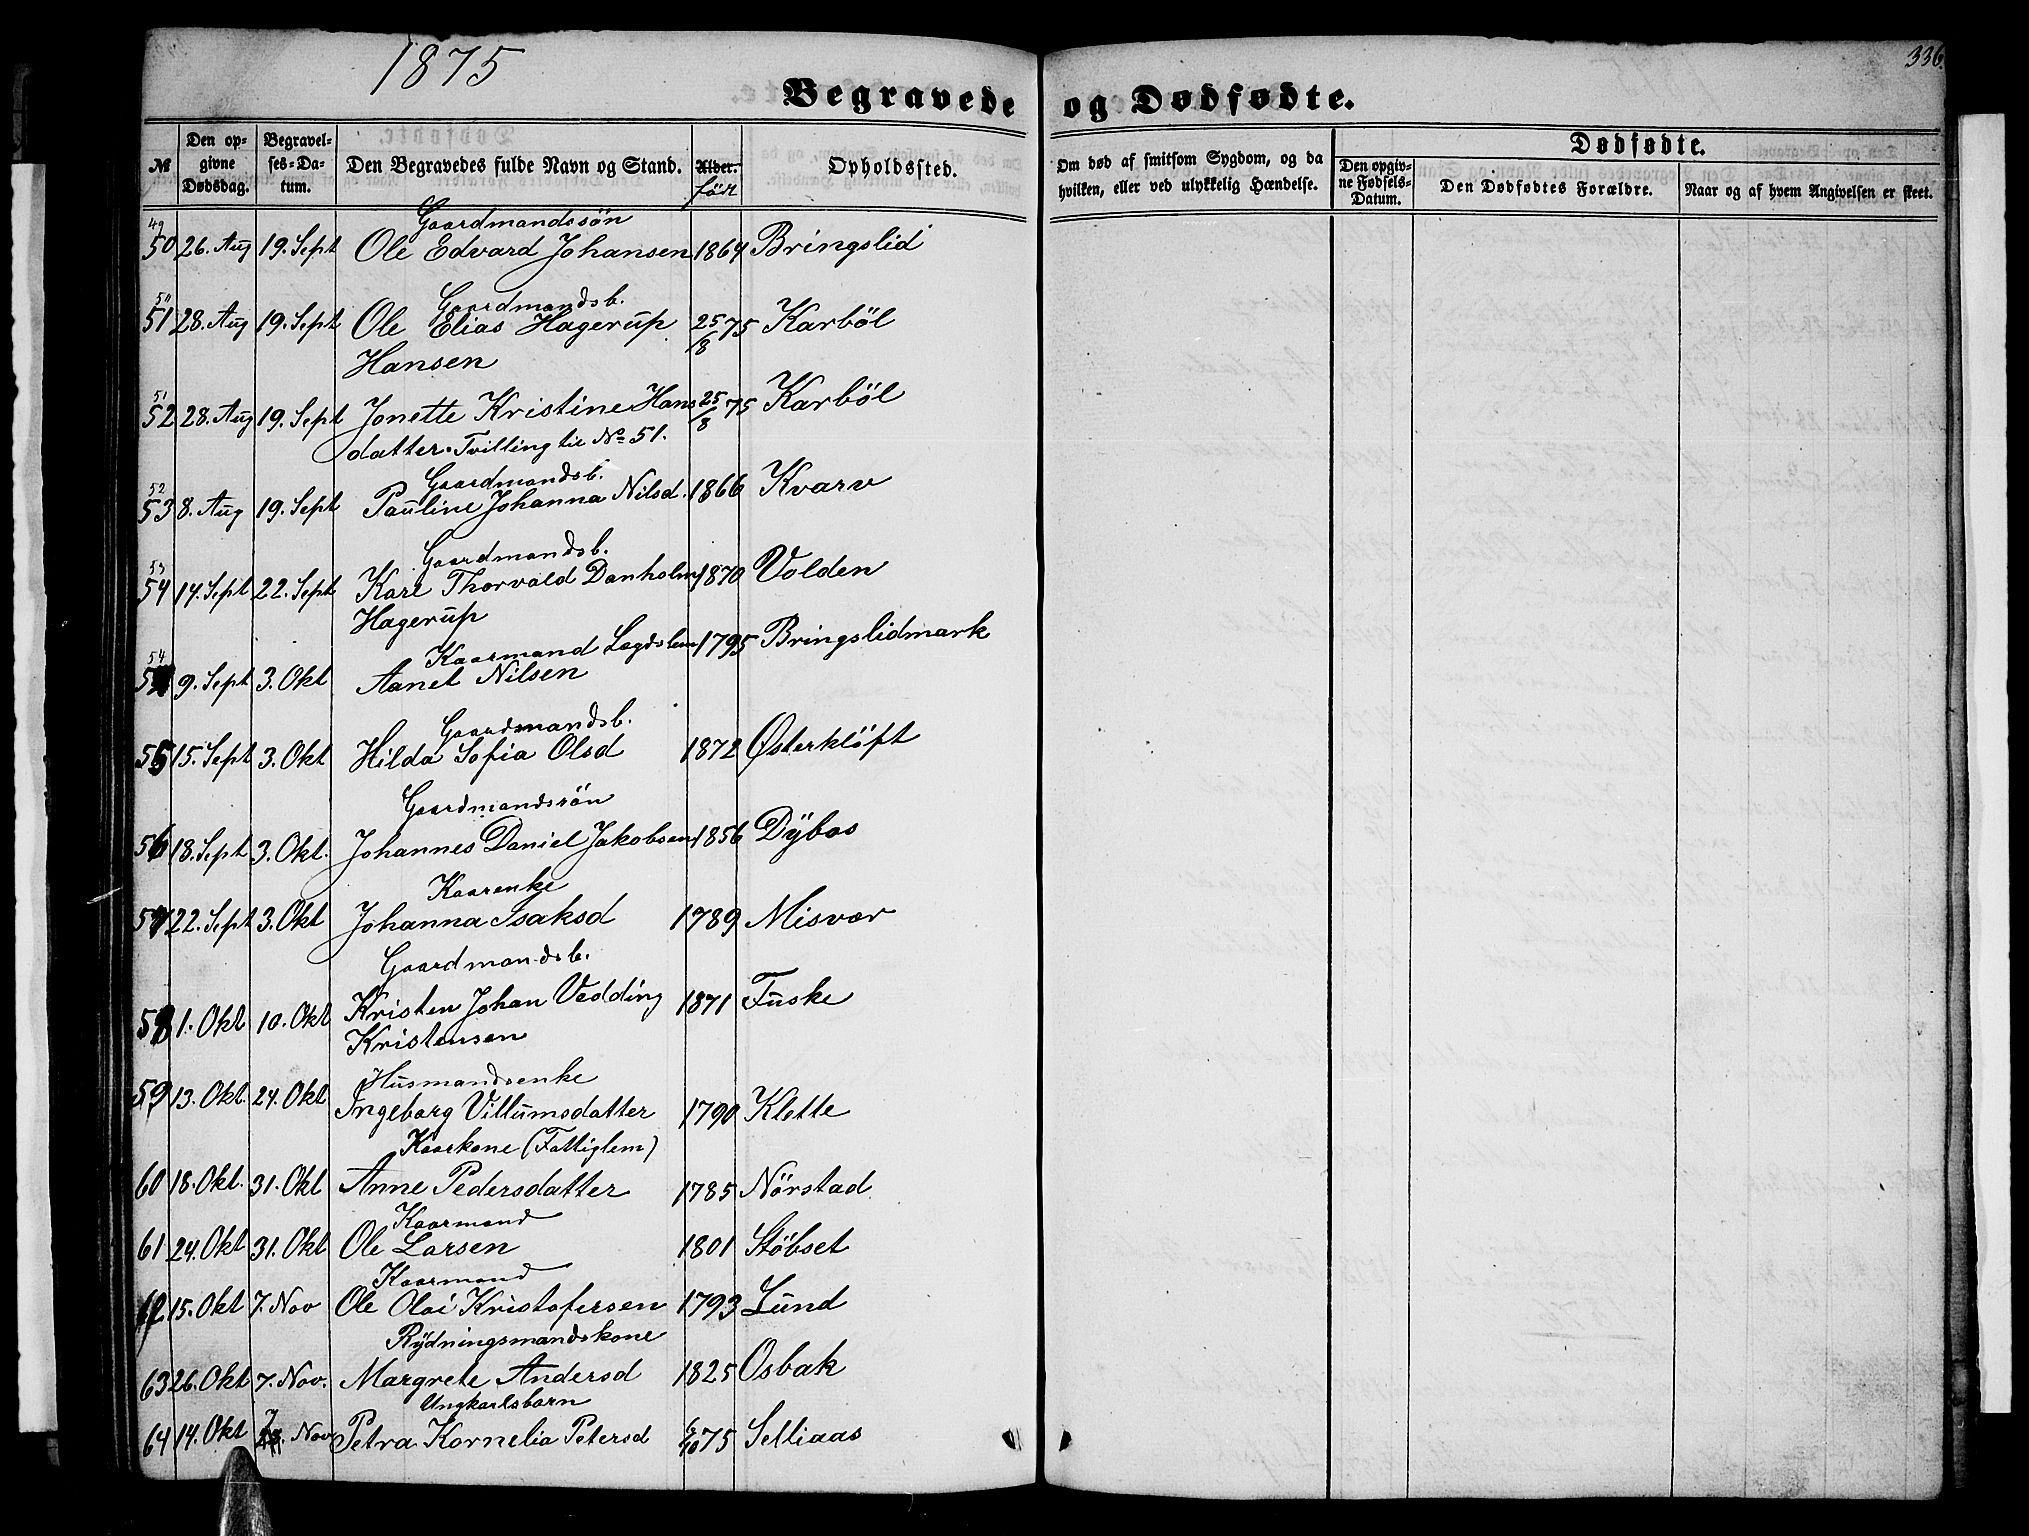 1875
336.
Begravede og Dødfødte.
№ Den opgivne Dødsdag. Begravelses-Datum. Den Begravedes fulde Navn og Stand. Alder. Opholdssted. Om død af smitsom Sygdom, og da hvilken, eller ved ulykkelig Hændelse. Dødfødte. Den opgivne Fødsels-Datum. Den Dødfødtes Forældre. Naar og af hvem Angivelsen er skeet.
för
Gaardmandssön
49 50 26. Aug 19. Sept Ole Edvard Johansen 1864 Bringslid
Gaardmandsb.
50 51 28. Aug 19. Sept Ole Elias Hagerup 25/8 75 Karböl
Hansen
51 52 28. Aug 19. Sept Jonette Kristine Hans 25/8 75 Karböl
datter. Tvilling til No 51.
Gaardmandsb.
52 53 8. Aug 19. Sept Pauline Johanna Nilsd. 1866 Kvarv
Gaardmandsb.
53 54 14. Sept 22. Sept Karl Thorvald Danholm 1870 Volden
Hagerup
Kaarmand Lægdslem
54 9. Sept 3. Okt Aanet Nilsen 1795 Bringslidmark
Gaardsmandsb.
55 15. Sept 3. Okt Hilda Sofia Olsd 1872 Østerklöft
Gaardmandssön
56 18. Sept 3. Okt. Johannes Daniel Jakobsen 1856 Dybas
Kaarenke
57 22. Sept 3. Okt Johanna Isaksd 1789 Misvær
Gaardmandsb.
58 1. Okt 10. Okt Kristen Johan Vedding 1871 Fuske
Kristensen
Husmandsenke
59 13. Okt. 24. Okt Ingeborg Villumsdatter 1790 Klette
Kaarkone (Fattiglem)
60 18. Okt. 31. Okt Anne Pedersdatter 1785 Nörstad
Kaarmand
61 24. Okt 31. Okt Ole Larsen 1801 Stöbset
Kaarmand
62 15. Okt 7. Nov Ole Olai Kristofersen 1793 Lund
Rydningsmandskone
63 26. Okt 7. Nov. Margrete Andersd 1825 Osbak
Ungkarlsbarn
64 14. Okt 7 Nov Petra Kornelia Petersd 6/10 75 Selliaas